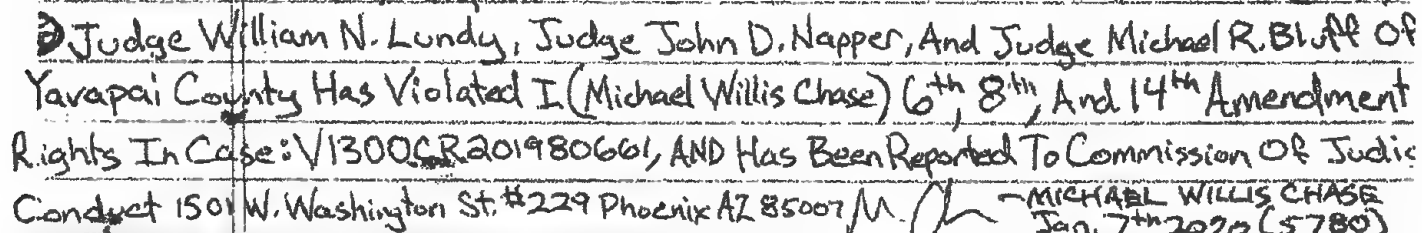 2) Judge William N. Lundy, Judge John D. Napper, And Judge Michael R. Bluff Of
Yavapai County Has Violated I (Michael Willis Chase) 6th, 8th, And 14th Amendment
Rights In Case: V1300CR201980661, AND Has Been Reported To Commission Of Judic
Conduct 1501 W. Washington St. #229 Phoenix AZ 85007 - MICHAEL WILLIS CHASE
Jan. 7th 2020 (5780)